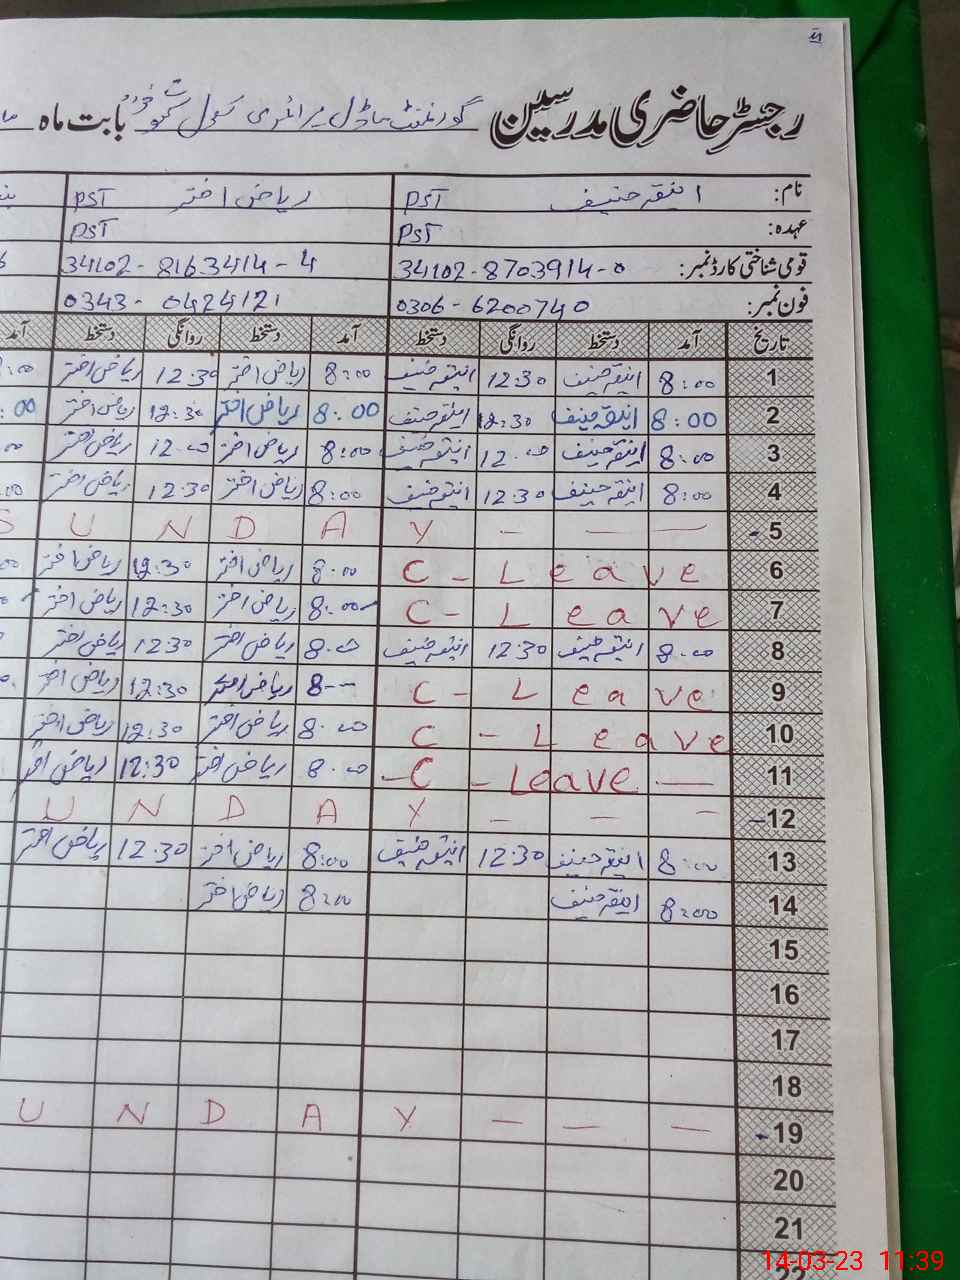 رجسٹر حاضری مدرسین گورنمنٹ ماڈل پرائمری سکول بابت ماہ
نام: انیقہ حنیف PST ریاض اختر PST
عہدہ: PST PST
قومی شناختی کارڈ نمبر: 34102-8703914-0 34102-8163414-4
فون نمبر: 0306-6200740 0343-0424121
تاریخ آمد دستخط روانگی دستخط آمد دستخط روانگی دستخط آمد
1 8:00 انیقہ حنیف 12:30 انیقہ حنیف 8:00 ریاض اختر 12:30 ریاض اختر :00
2 8:00 انیقہ حنیف 12:30 انیقہ حنیف 8:00 ریاض اختر 12:30 ریاض اختر :00
3 8:00 انیقہ حنیف 12:00 انیقہ حنیف 8:00 ریاض اختر 12:00 ریاض اختر
4 8:00 انیقہ حنیف 12:30 انیقہ حنیف 8:00 ریاض اختر 12:30 ریاض اختر :00
5 S U N D A Y - — —
6 C - Leave 8:00 ریاض اختر 12:30 ریاض اختر
7 C - Leave 8:00 ریاض اختر 12:30 ریاض اختر
8 8:00 انیقہ حنیف 12:30 انیقہ حنیف 8:00 ریاض اختر 12:30 ریاض اختر
9 C - Leave 8-- ریاض اختر 12:30 ریاض اختر
10 C - Leave 8:00 ریاض اختر 12:30 ریاض اختر
11 - C - Leave — 8:00 ریاض اختر 12:30 ریاض اختر
12 U N D A Y - - -
13 8:00 انیقہ حنیف 12:30 انیقہ حنیف 8:00 ریاض اختر 12:30 ریاض اختر
14 8:00 انیقہ حنیف 8:00 ریاض اختر
15
16
17
18
19 U N D A Y — — —
20
21
22
14-03-23 11:39